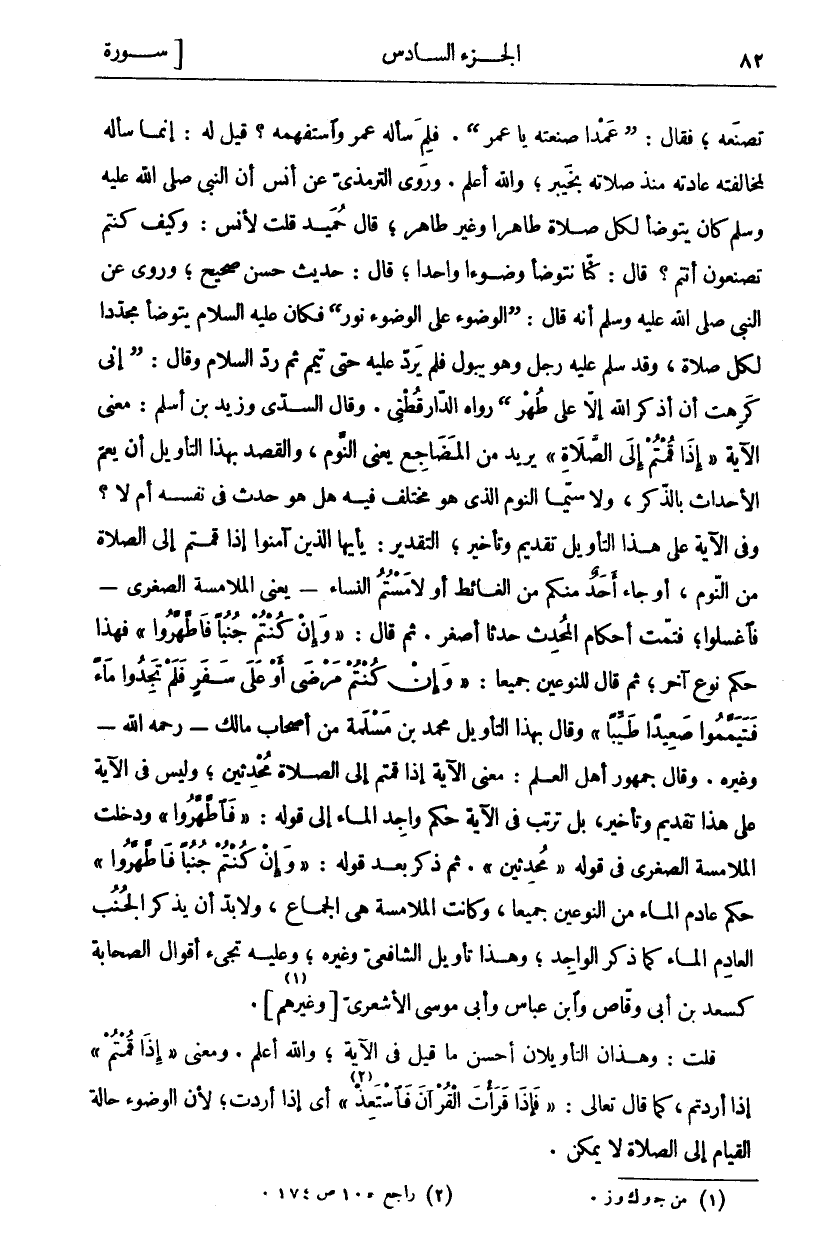 ٨٢ الجـزء السـادس [ ســورة
تصنَعه ؛ فقال : ” عَمْدا صنعته يا عمر “ . فلِمَ سأله عمر وٱستفهمه ؟ قيل له : إنمـا سأله
لمخالفته عادته منذ صلاته بخَيبر ؛ والله أعلم . ورَوى الترمذىّ عن أنس أن النبي صلى الله عليه
وسلم كان يتوضأ لكل صـلاة طاهرا وغير طاهر ؛ قال حُمَيـد قلت لأنس : وكيف كنتم
تصنعون أنتم ؟ قال : كنّا نتوضأ وضـوءا واحدا ؛ قال : حديث حسن صحيح ؛ وروى عن
النبى صلى الله عليه وسلم أنه قال : ”الوضوء على الوضوء نور“ فكان عليه السلام يتوضأ مجدّدا
لكل صلاة ، وقد سلم عليه رجل وهو يبول فلم يَردّ عليه حتى تيمم ثم ردّ السلام وقال : ” إنى
كَرِهت أن أذكر الله إلّا على طُهْر “ رواه الدّارقطْنِى . وقال السـدّى وزيد بن أسلم : معنى
الآية « إِذَا قُمْتُمْ إِلَى الصَّلَاةِ » يريد من المَضَاجِع يعنى النَّوم ، والقصد بهذا التأويل أن يعم
الأحداث بالذّكر ، ولا سيّمـا النوم الذى هو مختلف فيـه هل هو حدث فى نفسـه أم لا ؟
وفى الآية على هـذا التأويل تقديم وتأخير ؛ التقدير : يأيها الذين آمنوا إذا قمـتم إلى الصلاة
من النّوم ، أو جاء أَحَدٌ منكم من الغـائط أو لامَسْتُمُ النساء — يعنى الملامسة الصغرى —
فٱغسلوا؛ فتمّت أحكام المُحدِث حدثا أصغر . ثم قال : « وَإِنْ كُنْتُمْ جُنُبًا فَاطَّهَّرُوا » فهذا
حكم نوع آخر ؛ ثم قال للنوعين جميعا : « وَإِنْ كُنْتُمْ مَرْضَى أَوْ عَلَى سَـفَرٍ فَلَمْ تَجِدُوا مَاءً
فَتَيَمَّمُوا صَعِيدًا طَيِّبًا » وقال بهذا التأويل محمد بن مَسْلَمة من أصحاب مالك — رحمه الله —
وغيره . وقال جمهور أهل العـلم : معنى الآية إذا قمتم إلى الصـلاة مُحْدِثين ؛ وليس فى الآية
على هذا تقديم وتأخير، بل ترتب فى الآية حكم واجِد المـاء إلى قوله : « فَٱطَّهَّرُوا » ودخلت
الملامسة الصغرى فى قوله « مُحدِثين » . ثم ذكر بعـد قوله : « وَإِنْ كُنْتُمْ جُنُبًا فَاطَّهَّرُوا »
حكم عادم المـاء من النوعين جميعا ، وكانت الملامسة هى الجماع ، ولابدّ أن يذكر الجُنُب
العادِم المـاء كما ذكر الواجِد ؛ وهـذا تأويل الشافعىّ وغيره ؛ وعليـه تجىء أقوال الصحابة
كسعد بن أبى وقّاص وٱبن عباس وأبى موسى الأشعرىّ [وغيرهم](١) .
قلت : وهـذان التأويلان أحسن ما قيل فى الآية ؛ والله أعلم . ومعنى « إِذَا قُمْتُمْ »
إذا أردتم ، كما قال تعالى : « فَإِذَا قَرَأْتَ الْقُرْآنَ فَٱسْتَعِذْ »(٢) أى إذا أردت؛ لأن الوضوء حالة
القيام إلى الصلاة لا يمكن .
(١) من جـ و ك و ز . (٢) راجع جـ ١٠ ص ١٧٤ .